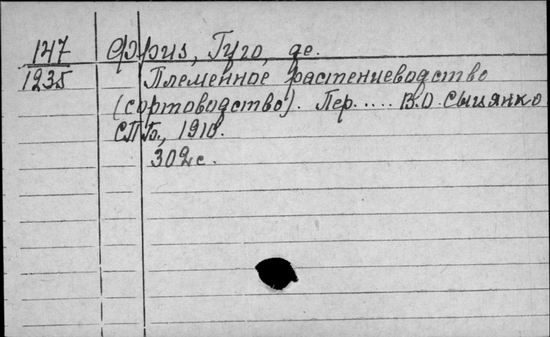 147
1235
Фриз, Гуго, де.
Племенное растениеводство
(сортоводство). Пер..... В.О. Сыцянко
СПБ., 1910.
302 с.